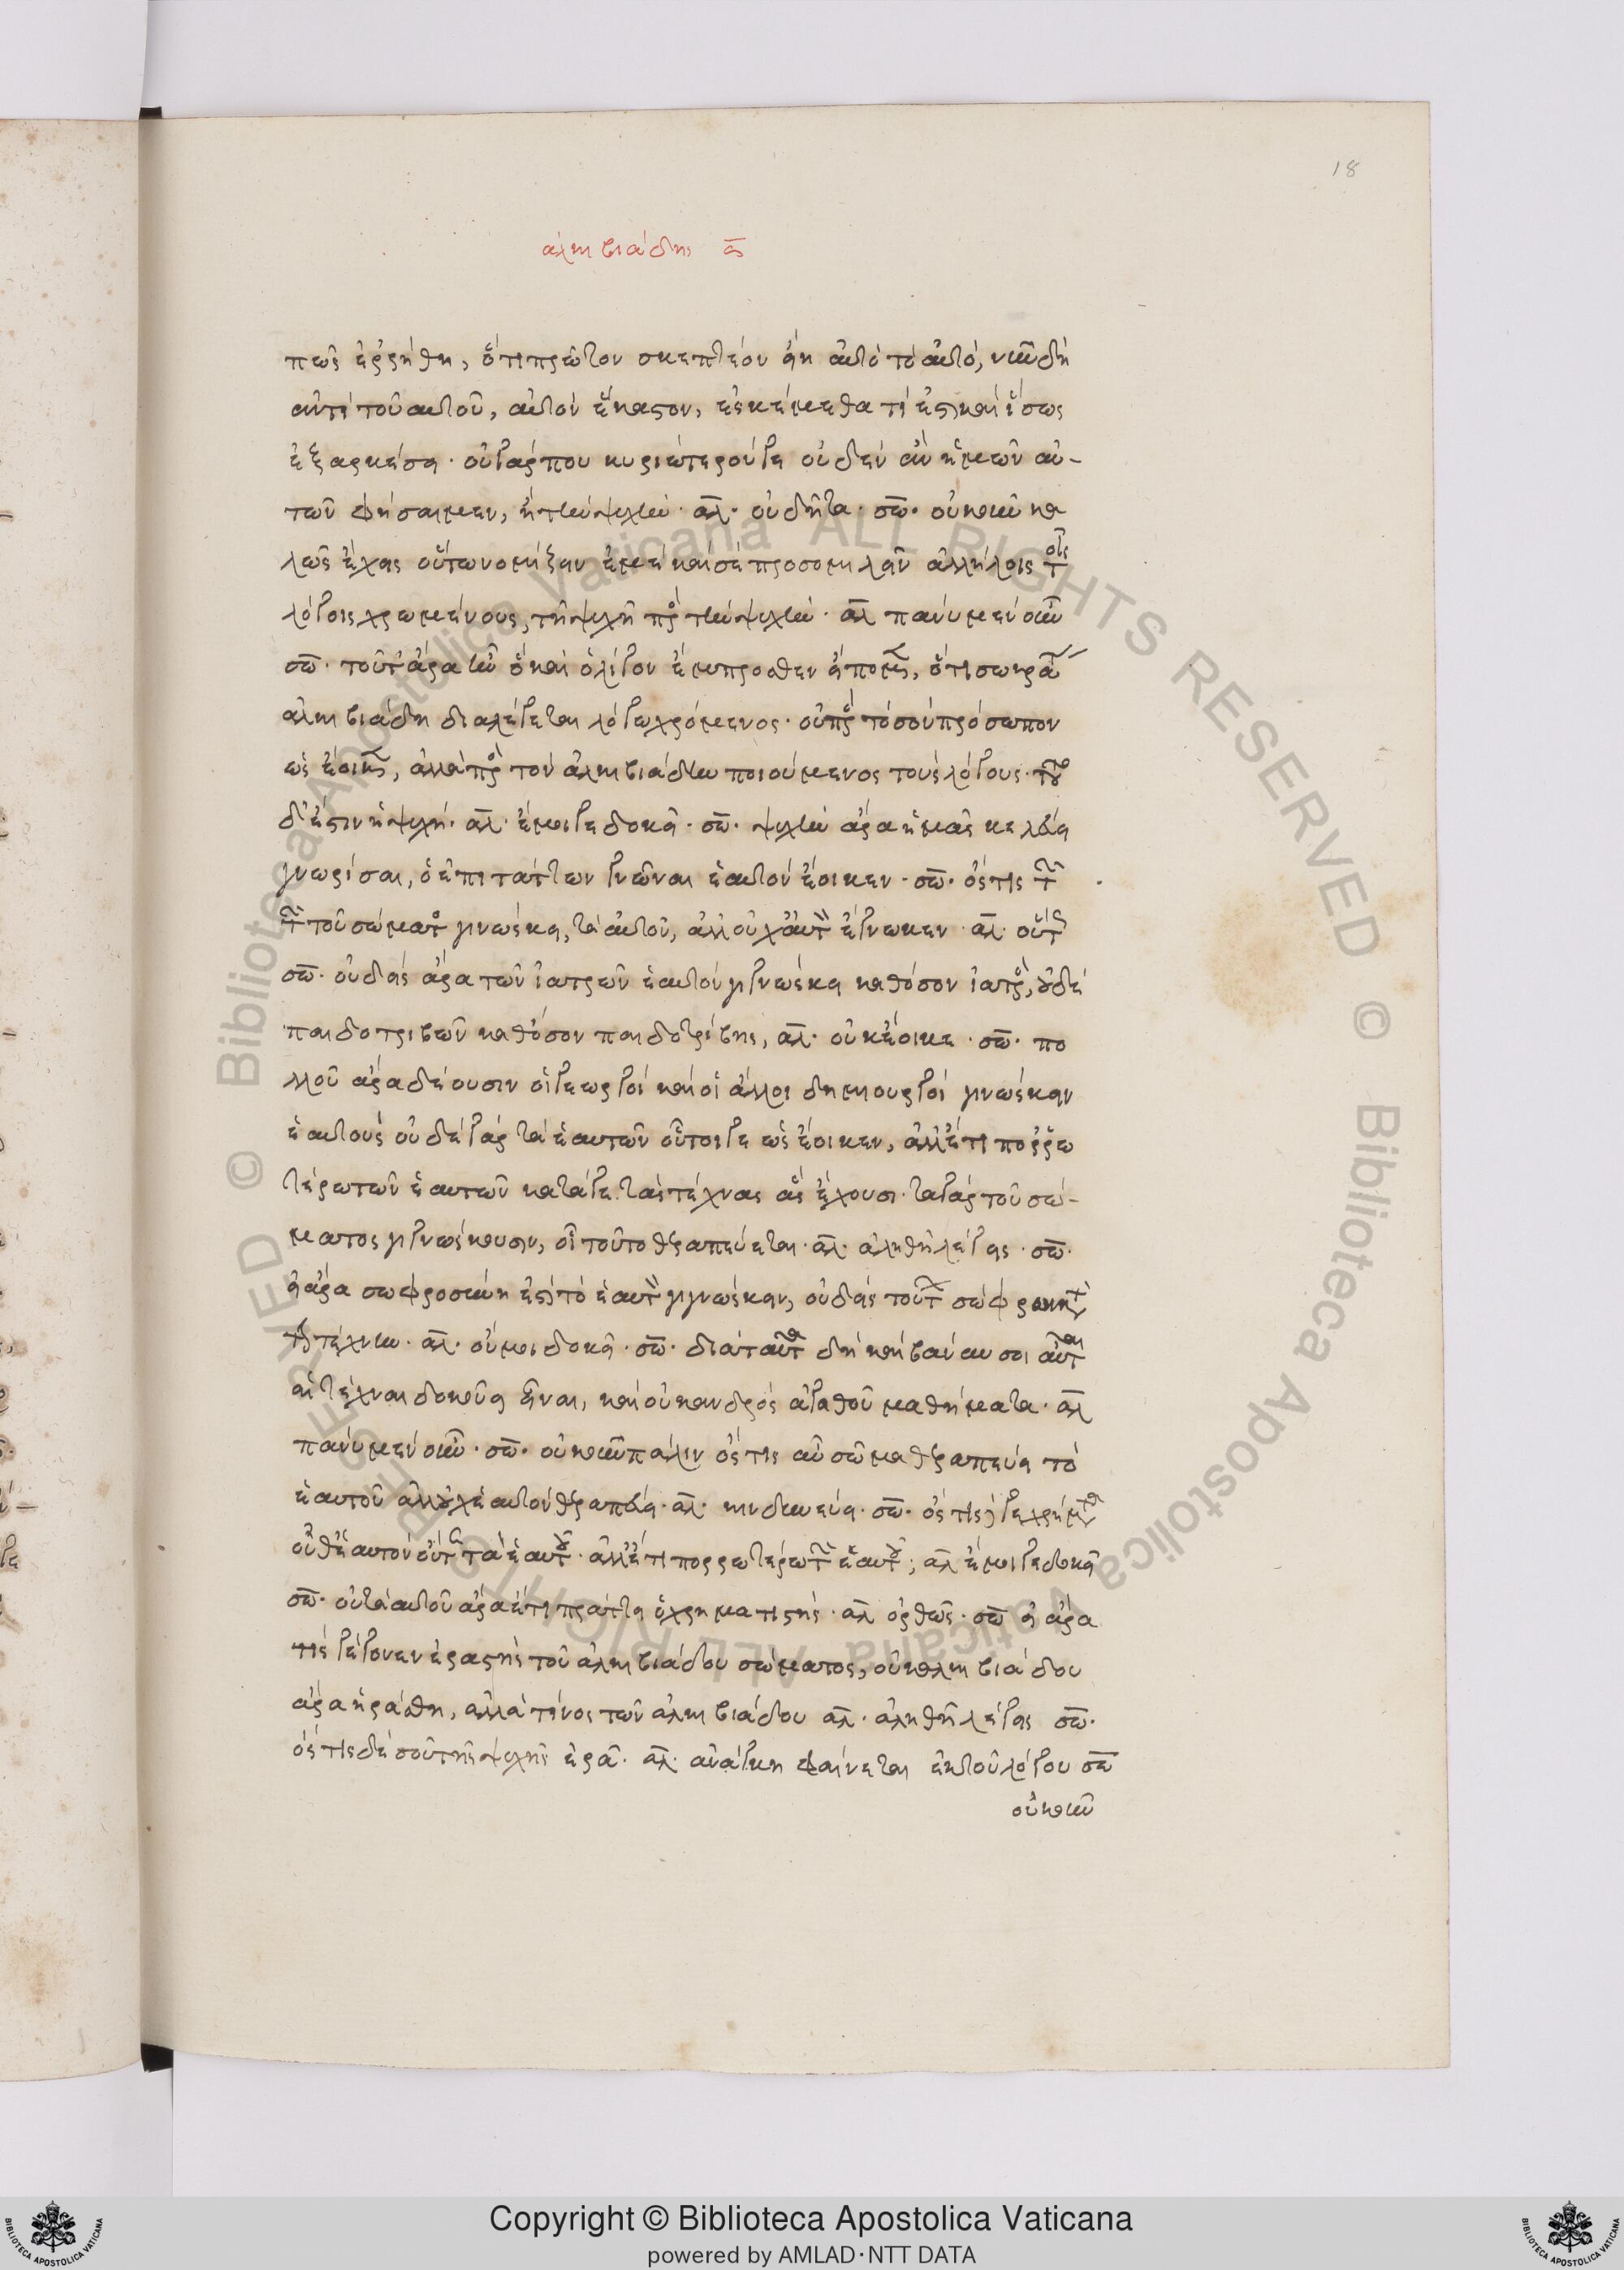 18
ἀλκιβιάδης α
πως ἐρρήθη, ὅτι πρῶτον σκεπτέον εἴη αὐτὸ τὸ αὐτό, νῦν δὴ
ἀντὶ τοῦ αὐτοῦ, αὐτὸν ἕκαστον, ἐσκέμμεθα τί ἐστι καὶ ἴσως
ἐξαρκέσει· οὐ γάρ που κυριώτερόν γε οὐδὲν ἂν ἡμῶν αὐ-
τῶν φήσαιμεν, ἢ τὴν ψυχήν· αλ· οὐ δῆτα· σω· οὐκοῦν κα
λῶς ἔχει οὕτω νομίζειν ἐμὲ καὶ σὲ προσομιλεῖν ἀλλήλοις τοῖς
λόγοις χρωμένους, τῇ ψυχῇ πρὸς τὴν ψυχήν· αλ πάνυ μὲν οὖν
σω· τοῦτ' ἄρα ἦν ὃ καὶ ὀλίγον ἔμπροσθεν εἴπομεν, ὅτι σωκράτης
ἀλκιβιάδῃ διαλέγεται λόγῳ χρώμενος· οὐ πρὸς τὸ σὸν πρόσωπον
ὡς ἔοικεν, ἀλλὰ πρὸς τὸν ἀλκιβιάδην ποιούμενος τοὺς λόγους· τοῦτο
δ' ἐστὶν ἡ ψυχή· αλ· ἔμοιγε δοκεῖ· σω· ψυχὴν ἄρα ἡμᾶς κελεύει
γνωρίσαι, ὁ ἐπιτάττων γνῶναι ἑαυτὸν ἔοικεν· σω· ὅστις τ
τῶν τοῦ σώματος γινώσκει, τὰ αὑτοῦ, ἀλλ' οὐχ αὑτὸν ἔγνωκεν· αλ· οὕτως
σω· οὐδεὶς ἄρα τῶν ἰατρῶν ἑαυτὸν γιγνώσκει καθόσον ἰατρός, οὐδὲ
παιδοτριβῶν καθόσον παιδοτρίβης, αλ· οὐκ ἔοικε· σω· πο
λλοῦ ἄρα δέουσιν οἱ γεωργοὶ καὶ οἱ ἄλλοι δημιουργοὶ γινώσκειν
ἑαυτοὺς οὐδὲ γὰρ τὰ ἑαυτῶν οὗτοί γε ὡς ἔοικεν, ἀλλ' ἔτι πορρω
τέρω τῶν ἑαυτῶν κατά γε τὰς τέχνας ἃς ἔχουσι· τὰ γὰρ τοῦ σώ-
ματος γιγνώσκουσιν, οἷς τοῦτο θεραπεύεται· αλ· ἀληθῆ λέγεις· σω·
εἰ ἄρα σωφροσύνη ἐστὶ τὸ ἑαυτὸν γιγνώσκειν, οὐδεὶς τούτων σώφρων κατὰ
τὴν τέχνην· αλ· οὔ μοι δοκεῖ· σω· διὰ ταῦτα δὴ καὶ βάναυσοι αὗται
αἱ τέχναι δοκοῦσι εἶναι, καὶ οὐκ ἀνδρὸς ἀγαθοῦ μαθήματα· αλ
πάνυ μὲν οὖν· σω· οὐκοῦν πάλιν ὅστις αὖ σῶμα θεραπεύει τὰ
ἑαυτοῦ ἀλλ' οὐχ ἑαυτὸν θεραπεύει· αλ· κινδυνεύει· σω· ὅστις γε χρήματα
οὔθ' ἑαυτὸν οὔτε τὰ ἑαυτοῦ· ἀλλ' ἔτι πορρωτέρω τῶν ἑαυτοῦ; αλ ἔμοιγε δοκεῖ
σω· οὐ τὰ αὑτοῦ ἄρα ἔτι πράττει ὁ χρηματιστής· αλ ὀρθῶς· σω εἰ ἄρα
τις γέγονεν ἐραστὴς τοῦ ἀλκιβιάδου σώματος, οὐκ ἀλκιβιάδου
ἄρα ἠράσθη, ἀλλά τινος τῶν ἀλκιβιάδου αλ· ἀληθῆ λέγεις σω·
ὅστις δὲ σοῦ τῆς ψυχῆς ἐρᾷ· αλ· ἀνάγκη φαίνεται ἐκ τοῦ λόγου σω
οὐκοῦν
© Biblioteca Apostolica Vaticana ALL RIGHTS RESERVED © Biblioteca Apostolica Vaticana ALL RIGHTS RESERVED
Copyright © Biblioteca Apostolica Vaticana
powered by AMLAD·NTT DATA
BIBLIOTECA APOSTOLICA VATICANA
BIBLIOTECA APOSTOLICA VATICANA